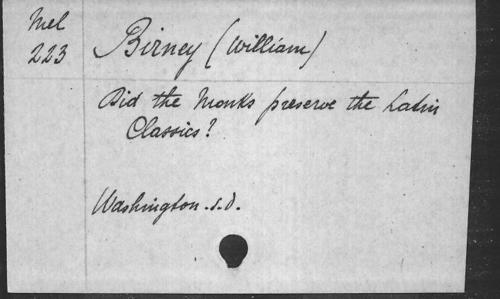 Mel
223
Birney (William)
Did the Monks preserve the Latin
Classics?
Washington. s.d.